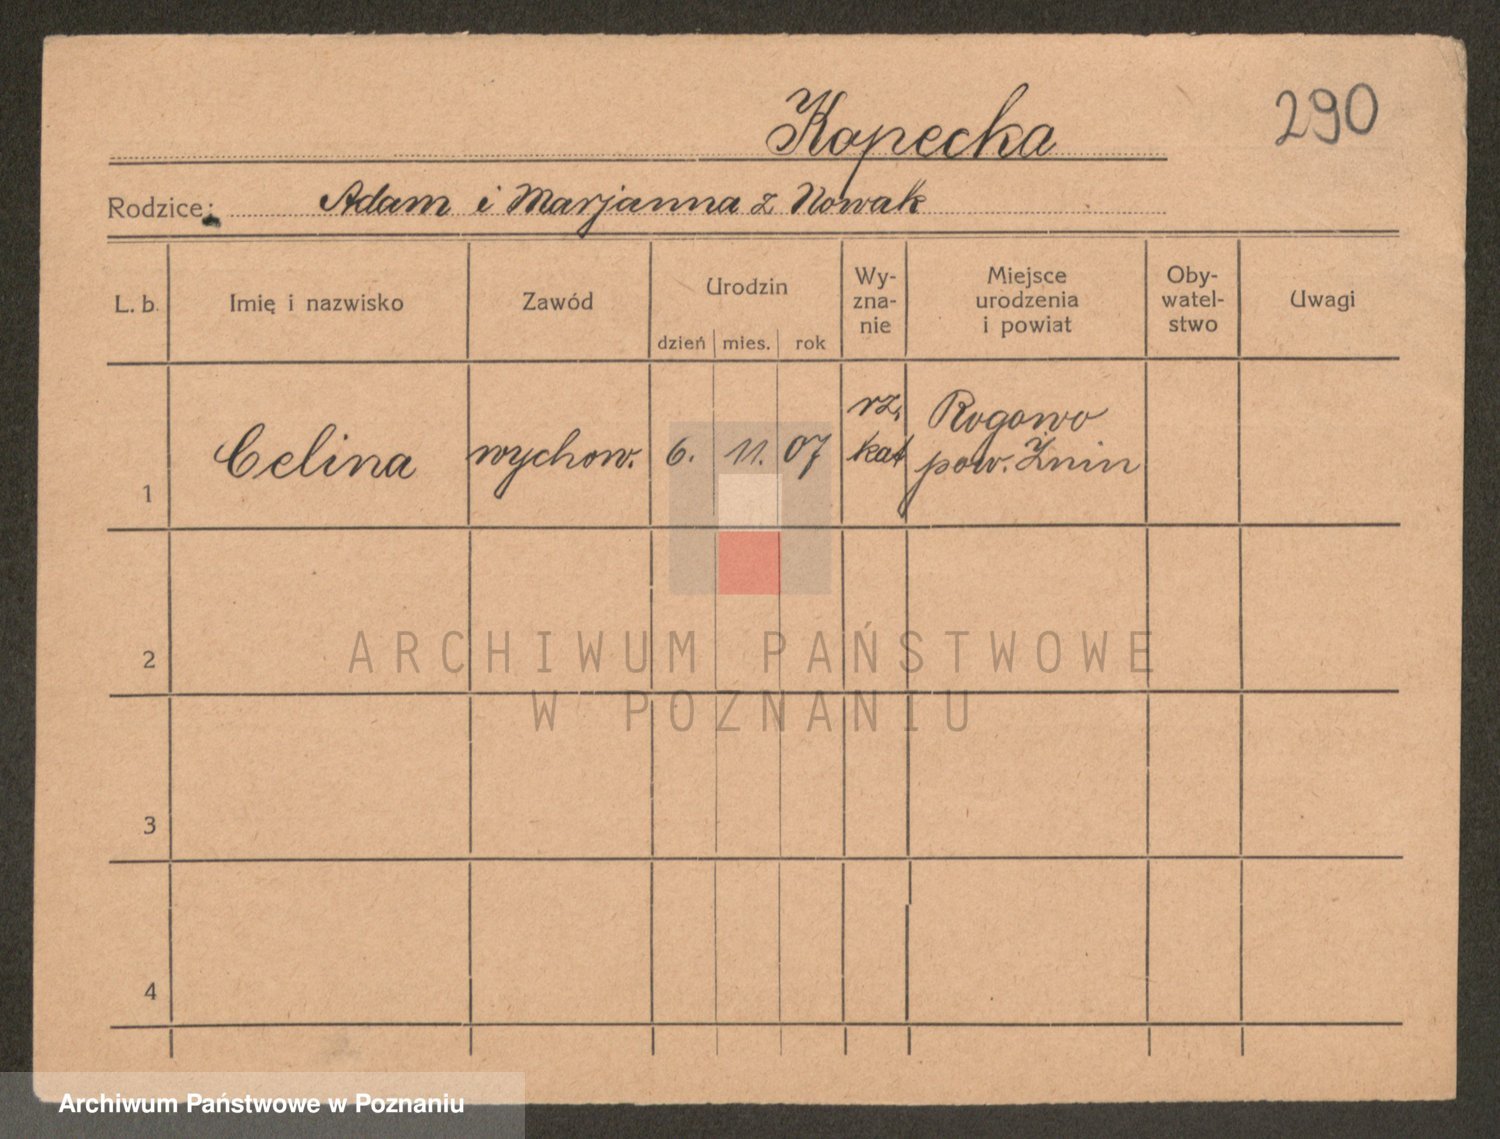 290
Kopecka
Rodzice: Adam i Marjanna z Nowak
L. b. Imię i nazwisko Zawód Urodzin dzień mies. rok Wy-zna-nie Miejsce urodzenia i powiat Oby-watel-stwo Uwagi
1 Celina wychow. 6. 11. 07 rz. kat Rogowo pow. Żnin
2
ARCHIWUM PAŃSTWOWE
W POZNANIU
3
4
Archiwum Państwowe w Poznaniu